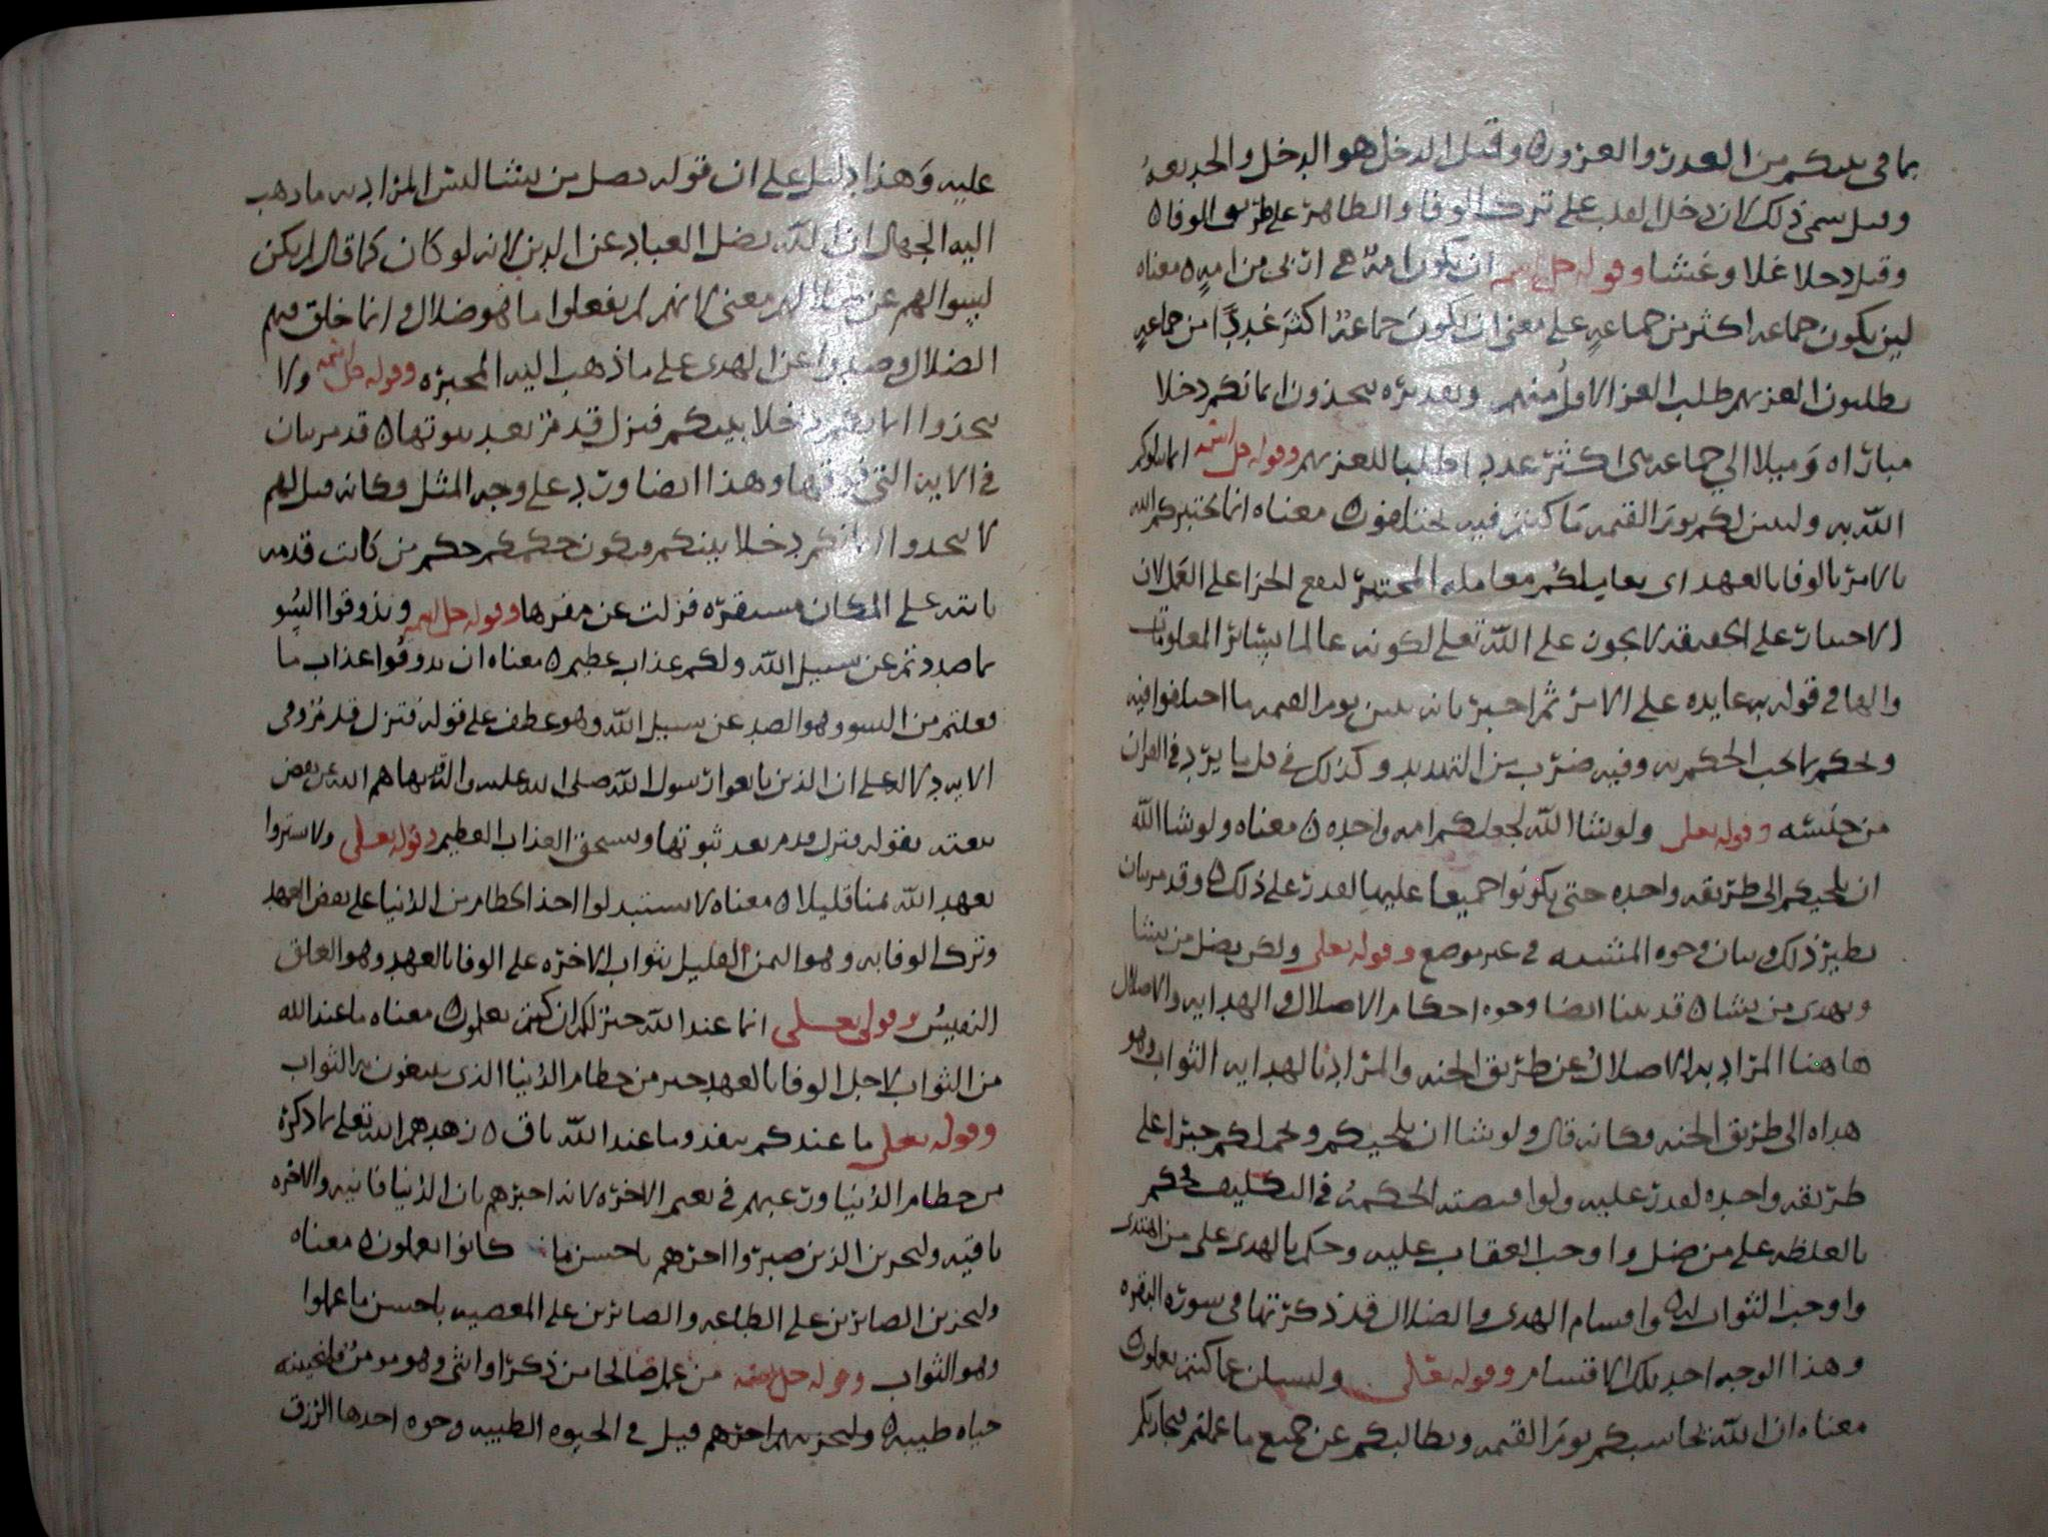 بما في بينكم من الغدر والغرور ه وقيل الدخل هو الدخل والخديعة
وقيل سمي ذلك لان دخل القلب على ترك الوفا والظاهر على طريق الوفا ه
وقيل دخلا غلا وغشا وقوله جل اسمه ان تكون امة هي اربى من امة ه معناه
لين يكون جماعه اكثر من جماعة على معنى ان تكون جماعة اكثر عددا من جماعة
يطلبون العز بهم طلب العز الاول منهم وتقديره تتخذون ايمانكم دخلا
وميلا الي جماعه هي اكثر عددا طلبا للعز بهم وقوله جل اسمه انما يبلوكم
الله به وليبينن لكم يوم القيمه ما كنتم فيه تختلفون ه معناه انما يختبركم الله
بالامر بالوفا بالعهد اي يعاملكم معاملة المختبر ليقع الجزا على العمل لان
الاختبار على الحقيقه لا يجوز على الله تعلى لكونه عالما بسائر المعلومات
والها في قوله به عايده على الامر ثم اخبر بانه يبين يوم القيمه ما اختلفوا فيه
ويحكم بما يجب الحكم به وفيه ضرب من التهديد وكذلك في كل ما يرد في القران
من جنسه وقوله تعلى ولو شا الله لجعلكم امه واحده ه معناه ولو شا الله
ان يلجيكم الى طريقه واحده حتى يكونوا جميعا عليها لقدر على ذلك ه وقد مر بيان
نظير ذلك وبيان وجوه المشيه في غير موضع وقوله تعلى ولكن يضل من يشا
ويهدي من يشا ه قد بينا ايضا وجوه احكام الاضلال والهدايه والاضلال
هاهنا المراد به الاضلال عن طريق الجنه والمراد بالهدايه الثواب وهو
هداه الى طريق الجنه وكانه قال ولو شا ان يلجيكم ويحملكم جبرا على
طريقه واحده لقدر عليه ولو اقتضته الحكمة في التكليف لحكم
بالغلظه على من ضل واوجب العقاب عليه وحكم بالهدى على من اهتدى
واوجب الثواب له ه واقسام الهدى والضلال قد ذكرتها في سورة البقره
وهذا الوجه احد تلك الاقسام وقوله تعلى ولتسئلن عما كنتم تعملون
معناه ان الله يحاسبكم يوم القيمه ويطالبكم عن جميع ما عملتم فيجازيكم
عليه وهذا دليل على ان قوله يضل من يشا ليس المراد به ما ذهب
اليه الجهال ان الله يضل العباد عن الدين لانه لو كان كما قال لم يكن
لسوالهم عن معنى لانهم لم يفعلوا ما هو ضلال وانما خلق فيهم
الضلال وصدوا عن الهدى على ما ذهب اليه المجبره وقوله جل اسمه ولا
تتخذوا ايمانكم دخلا بينكم فتزل قدم بعد ثبوتها ه قد مر بيان
في الايه التي فوقها وهذا ايضا ورد على وجه المثل وكانه قيل لهم
لا تتخذوا ايمانكم دخلا بينكم فيكون حكمكم حكم من كانت قدمه
ثابته على المكان مستقره فزلت عن مقرها وقوله جل اسمه وتذوقوا السو
بما صددتم عن سبيل الله ولكم عذاب عظيم ه معناه ان تذوقوا عذاب ما
فعلتم من السو وهو الصد عن سبيل الله وهو عطف على قوله فتزل قدم وفي
الايه دلالة على ان الذين بايعوا رسول الله صلى الله عليه واله
بيعته بقوله فتزل قدم بعد ثبوتها ويستحق العذاب العظيم وقوله تعلى ولا تشتروا
بعهد الله ثمنا قليلا ه معناه لا تستبدلوا اخذ الحطام من الدنيا على نقض العهد
وترك الوفا به وهو الثمن القليل بثواب الاخره على الوفا بالعهد وهو العلق
النفيس وقوله تعلى انما عند الله خير لكم ان كنتم تعلمون ه معناه ما عند الله
من الثواب لاجل الوفا بالعهد خير من حطام الدنيا الذي يبيعون به الثواب
وقوله تعلى ما عندكم ينفد وما عند الله باق ه زهدهم الله تعلى بما ذكره
من حطام الدنيا ورغبهم في نعيم الاخره لانه اخبرهم بان الدنيا فانيه والاخره
باقيه ولنجزين الذين صبروا اجرهم باحسن ما كانوا يعملون ه معناه
ولنجزين الصابرين على الطاعه والصابرين على المعصيه باحسن ما عملوا
وهو الثواب وقوله جل اسمه من عمل صالحا من ذكر او انثى وهو مومن فلنحيينه
حياه طيبه ه ولنجزينهم اجرهم قيل في الحيوه الطيبه وجوه احدها الرزق